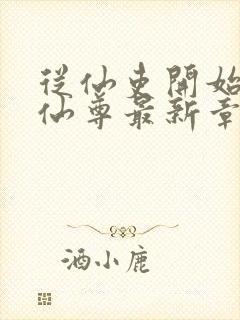 從仙吏開始
仙尊最新章
酒小鹿